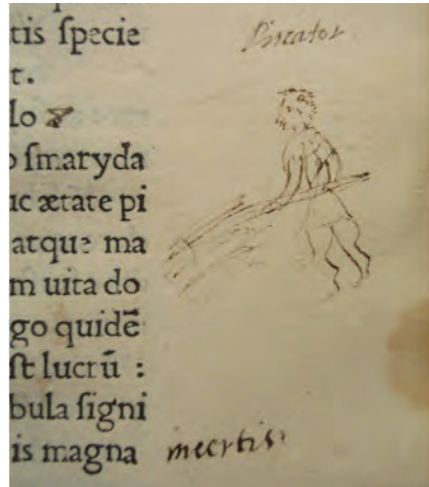 tis ſpecie
Piscator
t.
lo
ſmaryda
ic ætate pi
atque ma
m uita do
go quidē
ſt lucrū :
bula ſigni
is magna
incertis